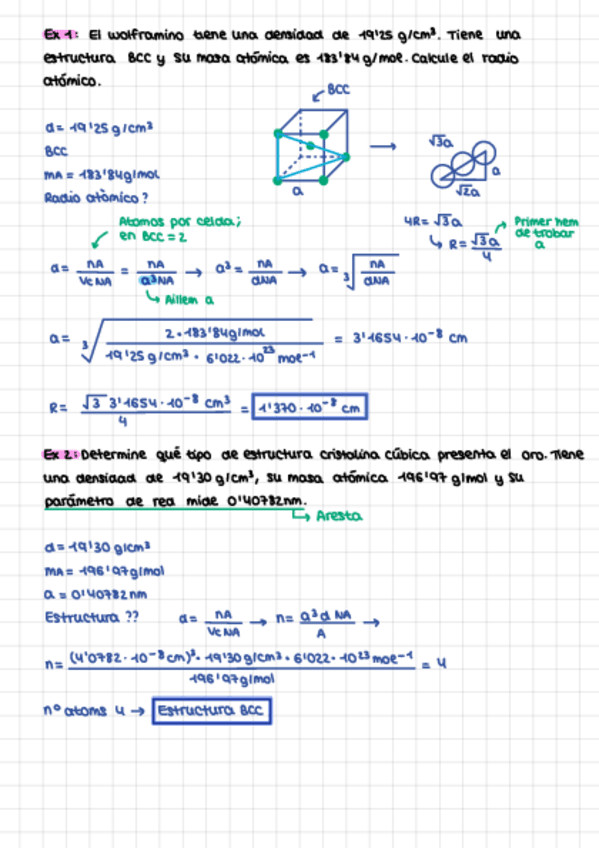 Ex 1: El wolframino tiene una densidad de 19'25 g/cm³. Tiene una
estructura BCC y su masa atómica es 183'84 g/moe. Calcule el radio
atómico.
BCC
d = 19'25 g/cm³
BCC
mA = 183'84g/mol
Radio atòmico?
a
√3a
a
√2a
Atomos por celda;
en BCC = 2
4R = √3a
R = √3a / 4
Primer hem
de trobar
a
d = nA / Vc NA = nA / a³NA → a³ = nA / dNA → a = ³√(nA / dNA)
Aillem a
a = ³√(2 · 183'84g/mol / 19'25 g/cm³ · 6'022 · 10²³ moe⁻¹) = 3'1654 · 10⁻⁸ cm
R = √3 3'1654 · 10⁻⁸ cm³ / 4 = 1'370 · 10⁻⁸ cm
Ex 2: Determine qué tipo de estructura cristalina cúbica presenta el oro. Tiene
una densidad de 19'30 g/cm³, su masa atómica 196'97 g/mol y su
parámetro de red mide 0'40782nm.
Aresta
d = 19'30 g/cm³
mA = 196'97g/mol
a = 0'40782nm
Estructura ?? d = nA / Vc NA → n = a³ d NA / A →
n = (4'0782 · 10⁻⁸ cm)³ · 19'30 g/cm³ · 6'022 · 10²³ moe⁻¹ / 196'97g/mol = 4
nº atoms 4 → Estructura BCC